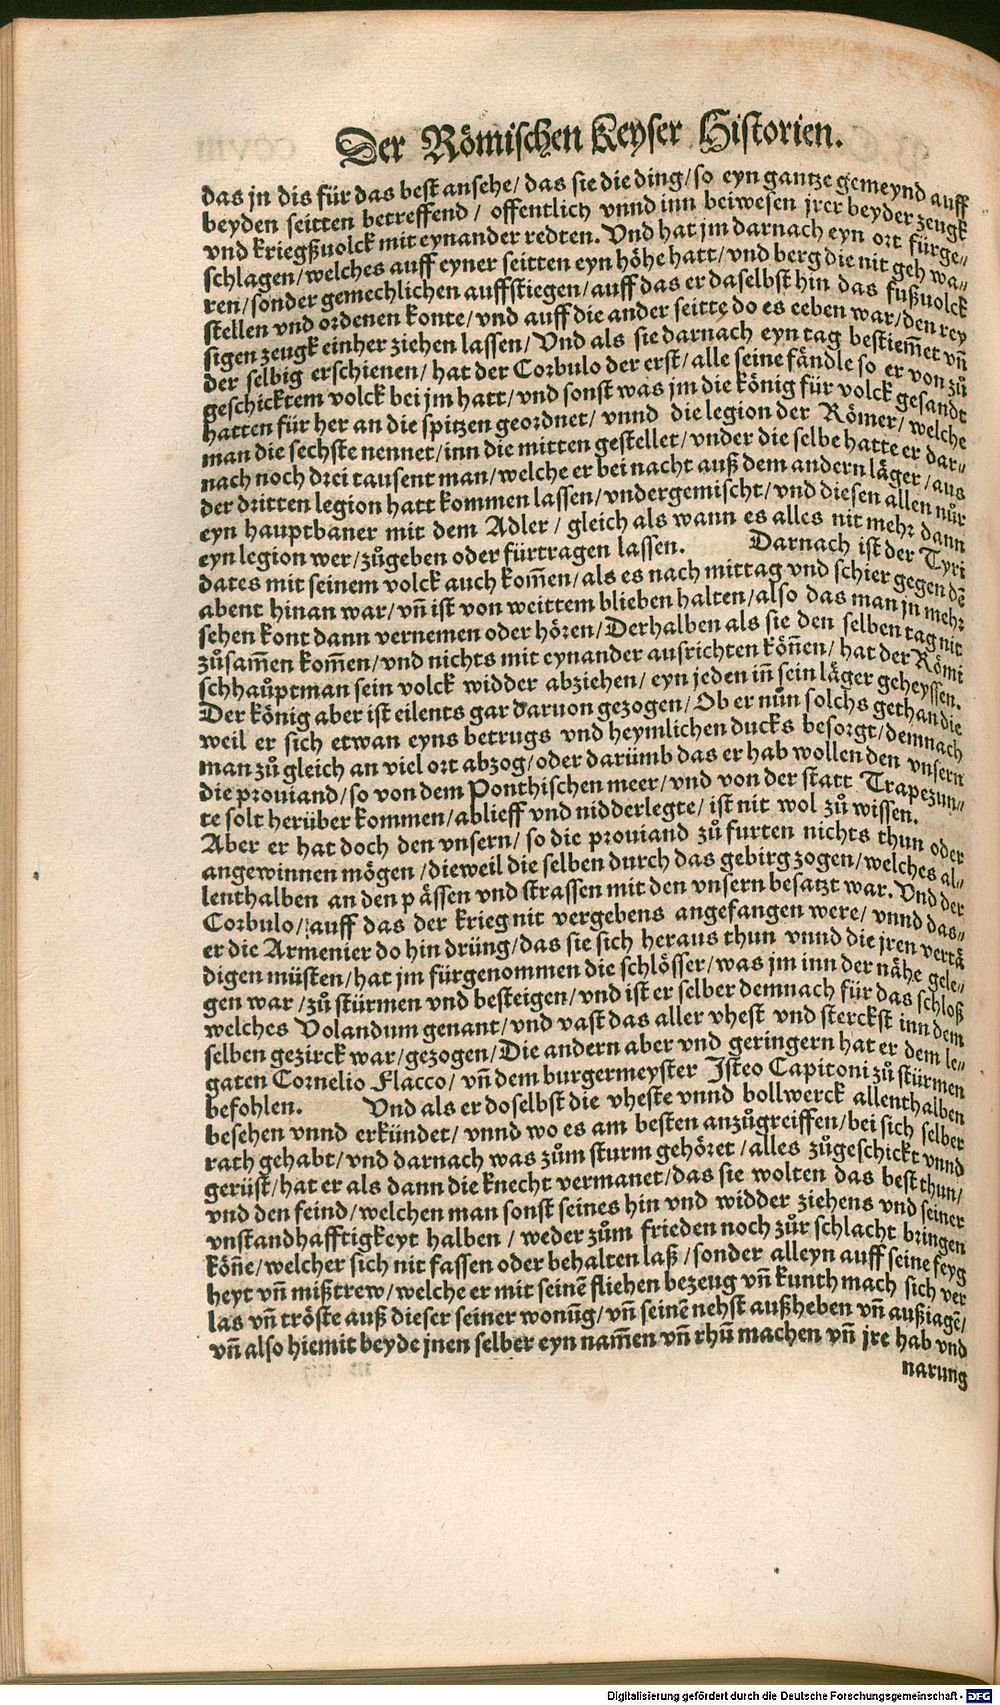 Der Römischen Keyser Historien.
das jn dis für das best ansehe/ das sie die ding/ so eyn gantze gemeynd auff
beyden seitten betreffend/ offentlich vnnd inn beiwesen jrer beyder zeugk
vnd kriegßuolck mit eynander redten. Vnd hat jm darnach eyn ort fürge„
schlagen/ welches auff eyner seitten eyn höhe hatt/ vnd berg die nit geh wa„
ren/ sonder gemechlichen auffstiegen/ auff das er daselbst hin das fußuolck
stellen vnd ordenen konte/ vnd auff die ander seitte do es eeben war/ den rey
sigen zeugk einher ziehen lassen/ Vnd als sie darnach eyn tag bestiem̄et vn̄
der selbig erschienen/ hat der Corbulo der erst/ alle seine fändle so er von zů
geschicktem volck bei jm hatt/ vnd sonst was jm die könig für volck gesandt
hatten für her an die spitzen geordnet/ vnnd die legion der Römer/ welche
man die sechste nennet/ inn die mitten gestellet/ vnder die selbe hatte er dar„
nach noch drei tausent man/ welche er bei nacht auß dem andern läger/ aus
der dritten legion hatt kommen lassen/ vndergemischt/ vnd diesen allen nůr
eyn hauptbaner mit dem Adler/ gleich als wann es alles nit mehr dann
eyn legion wer/ zůgeben oder fürtragen lassen. Darnach ist der Tyri
dates mit seinem volck auch kom̄en/ als es nach mittag vnd schier gegen dē
abent hinan war/ vn̄ ist von weittem blieben halten/ also das man jn mehr
sehen kont dann vernemen oder hören/ Derhalben als sie den selben tag nit
zůsam̄en kom̄en/ vnd nichts mit eynander ausrichten kön̄en/ hat der Römi
schhaůptman sein volck widder abziehen/ eyn jeden in̄ sein läger geheyssen.
Der könig aber ist eilents gar daruon gezogen/ Ob er nůn solchs gethan die
weil er sich etwan eyns betrugs vnd heymlichen ducks besorgt/ demnach
man zů gleich an viel ort abzog/ oder darümb das er hab wollen den vnsern
die prouiand/ so von dem Ponthischen meer/ vnd von der statt Trapezun„
te solt herüber kommen/ ablieff vnd nidderlegte/ ist nit wol zů wissen.
Aber er hat doch den vnsern/ so die prouiand zů furten nichts thun oder
angewinnen mögen/ dieweil die selben durch das gebirg zogen/ welches al„
lenthalben an den pässen vnd strassen mit den vnsern besatzt war. Vnd der
Corbulo/ auff das der krieg nit vergebens angefangen were/ vnnd das„
er die Armenier do hin drüng/ das sie sich heraus thun vnnd die jren vertä
digen müsten/ hat jm fürgenommen die schlösser/ was jm inn der nähe gele„
gen war/ zů stürmen vnd besteigen/ vnd ist er selber demnach für das schloß
welches Volandum genant/ vnd vast das aller vhest vnd sterckst inn dem
selben gezirck war/ gezogen/ Die andern aber vnd geringern hat er dem le„
gaten Cornelio Flacco/ vn̄ dem burgermeyster Isteo Capitoni zů stürmen
befohlen. Vnd als er doselbst die vheste vnnd bollwerck allenthalben
besehen vnnd erkündet/ vnnd wo es am besten anzůgreiffen/ bei sich selber
rath gehabt/ vnd darnach was zům sturm gehöret/ alles zůgeschickt vnnd
gerüst/ hat er als dann die knecht vermanet/ das sie wolten das best thun/
vnd den feind/ welchen man sonst seines hin vnd widder ziehens vnd seiner
vnstandhafftigkeyt halben/ weder zům frieden noch zůr schlacht bringen
kön̄e/ welcher sich nit fassen oder behalten laß/ sonder alleyn auff seine feyg
heyt vn̄ mißtrew/ welche er mit seinē fliehen bezeug vn̄ kunth mach sich ver
las vn̄ tröste auß dieser seiner wonūg/ vn̄ seinē nehst außheben vn̄ außiagē/
vn̄ also hiemit beyde jnen selber eyn nam̄en vn̄ rhū machen vn̄ jre hab vnd
narung
Digitalisierung gefördert durch die Deutsche Forschungsgemeinschaft - DFG